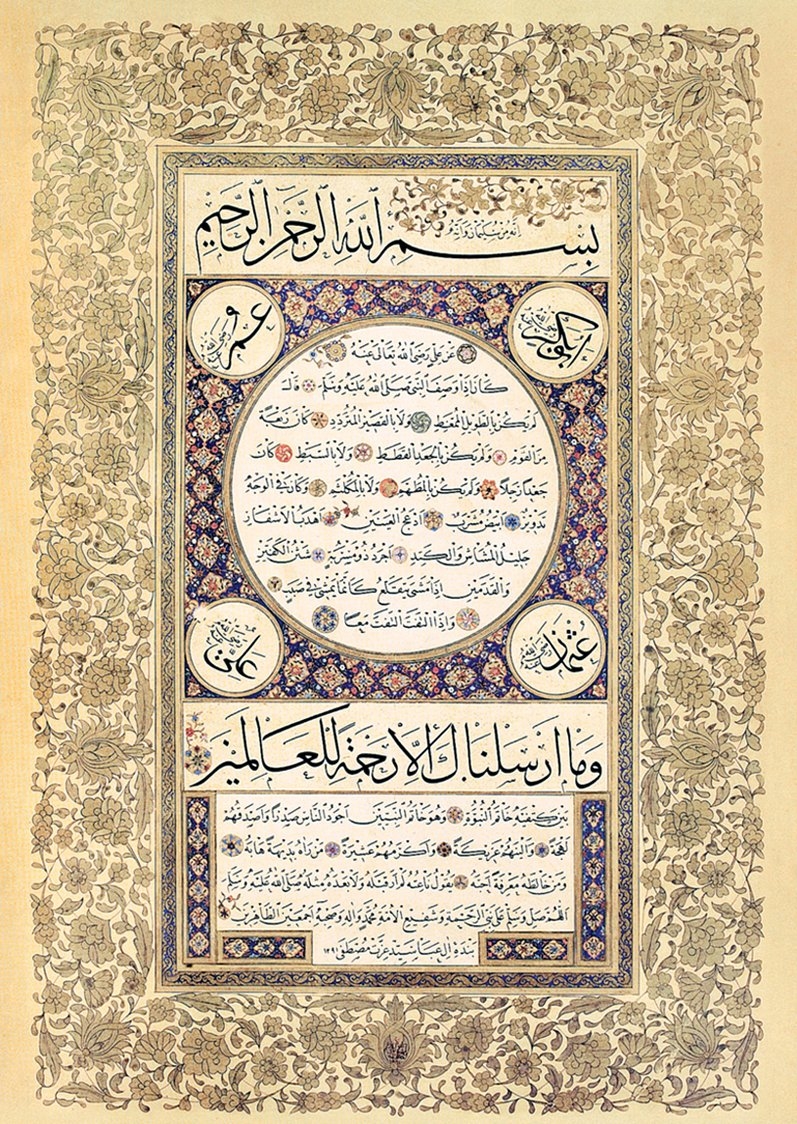 بِسْمِ اللهِ الرَّحْمٰنِ الرَّحِيمِ
اِنَّهُ مِنْ سُلَيْمَانَ وَاِنَّهُ
ابو بكر رضى الله عنه
عمر رضى الله عنه
عَنْ عَلِىٍّ رَضِىَ اللهُ تَعَالٰى عَنْهُ
كَانَ اِذَا وَصَفَ النَّبِىَّ صَلَّى اللهُ عَلَيْهِ وَسَلَّمَ قَالَ
لَمْ يَكُنْ بِالطَّوِيلِ الْمُمَّغِطِ وَلَا بِالْقَصِيرِ الْمُتَرَدِّدِ كَانَ رَبْعَةً
مِنَ الْقَوْمِ وَلَمْ يَكُنْ بِالْجَعْدِ الْقَطَطِ وَلَا بِالسَّبَطِ كَانَ
جَعْدًا رَجِلًا وَلَمْ يَكُنْ بِالْمُطَهَّمِ وَلَا بِالْمُكَلْثَمِ وَكَانَ فِى الْوَجْهِ
تَدْوِيرٌ اَبْيَضُ مُشْرَبٌ اَدْعَجُ الْعَيْنَيْنِ اَهْدَبُ الْاَشْفَارِ
جَلِيلُ الْمُشَاشِ وَالْكَتَدِ اَجْرَدُ ذُو مَسْرُبَةٍ شَثْنُ الْكَفَّيْنِ
وَالْقَدَمَيْنِ اِذَا مَشٰى يَتَقَلَّعُ كَاَنَّمَا يَمْشِى فِى صَبَبٍ
وَاِذَا الْتَفَتَ الْتَفَتَ مَعًا
عثمان رضى الله عنه
على رضى الله عنه
وَمَا اَرْسَلْنَاكَ اِلَّا رَحْمَةً لِلْعَالَمِينَ
بَيْنَ كَتِفَيْهِ خَاتَمُ النُّبُوَّةِ وَهُوَ خَاتَمُ النَّبِيِّينَ اَجْوَدُ النَّاسِ صَدْرًا وَاَصْدَقُهُمْ
لَهْجَةً وَاَلْيَنُهُمْ عَرِيكَةً وَاَكْرَمُهُمْ عَشِيرَةً مَنْ رَاٰهُ بَدِيهَةً هَابَهُ
وَمَنْ خَالَطَهُ مَعْرِفَةً اَحَبَّهُ يَقُولُ نَاعِتُهُ لَمْ اَرَ قَبْلَهُ وَلَا بَعْدَهُ مِثْلَهُ صَلَّى اللهُ عَلَيْهِ وَسَلَّمَ
اَللّٰهُمَّ صَلِّ وَسَلِّمْ عَلٰى نَبِىِّ الرَّحْمَةِ وَشَفِيعِ الْاُمَّةِ مُحَمَّدٍ وَاٰلِهِ وَصَحْبِهِ اَجْمَعِينَ الطَّاهِرِينَ
بندهٔ آل عبا سيد عزت مصطفى ١٢٩١